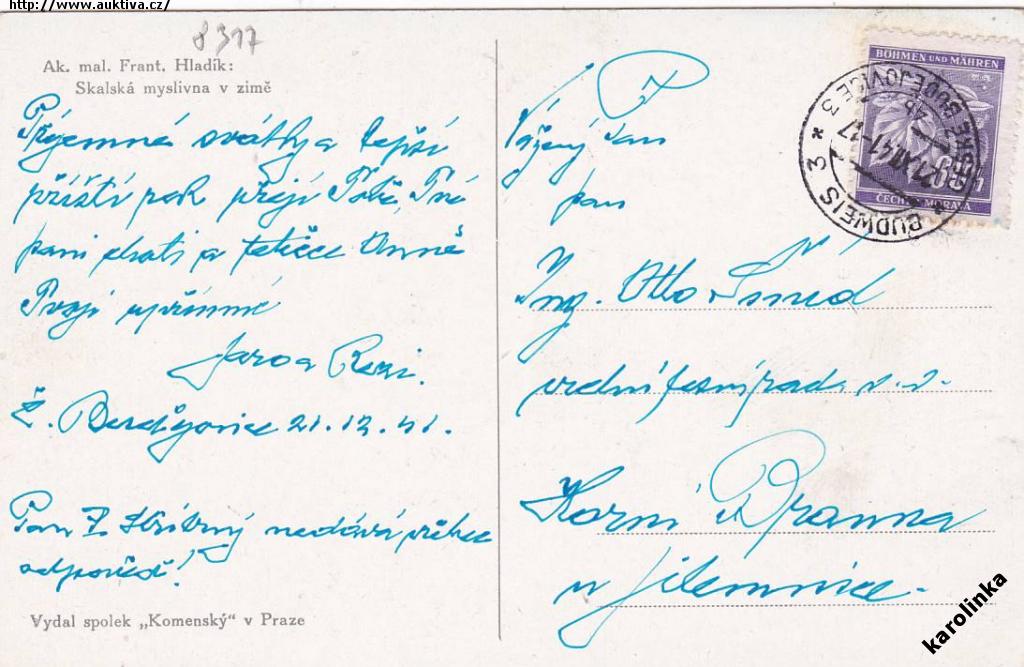 http://www.auktiva.cz/
8317
Ak. mal. Frant. Hladík:
Skalská myslivna v zimě
Příjemné svátky a lepší
příští rok přejí Tobě, Tvé
paní choti a tetičce Anně
Tvoji upřímní
Jara a
Č. Budějovice 21.12.41.
Pan nedává vůbec
odpověď!
Vydal spolek „Komenský" v Praze
Vážený pan
pan
Ing. Otto Šmíd
vrchní lesní rada v.v.
Horní Branná
u Jilemnice
BÖHMEN UND MÄHREN
ČECHY A MORAVA
60
BUDWEIS 3 * ČESKÉ BUDĚJOVICE 3
21.XII.41-17
karolinka